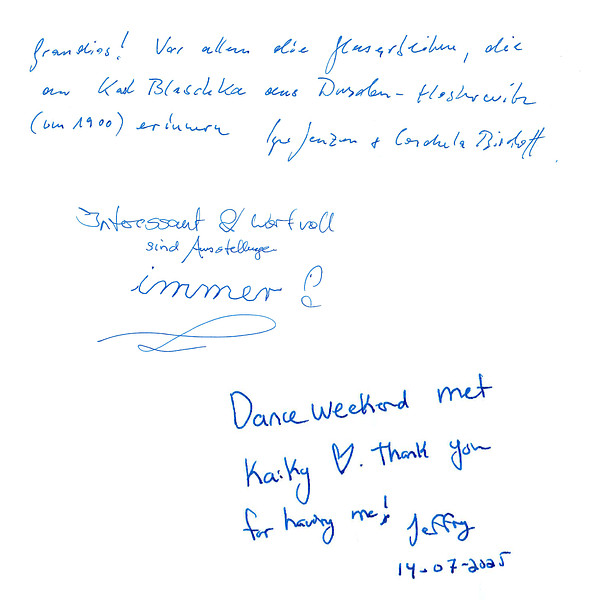 Grandios! Vor allem die Glasarbeiten, die
an Karl Blaschka aus Dresden-Hosterwitz
(um 1900) erinnern Jenzen + Cordula Bischoff
Interessant & Wertvoll
sind Ausstellungen
immer !
Dance weekend met
Kaiky ♡. Thank you
for having me! Jeffry
14-07-2025